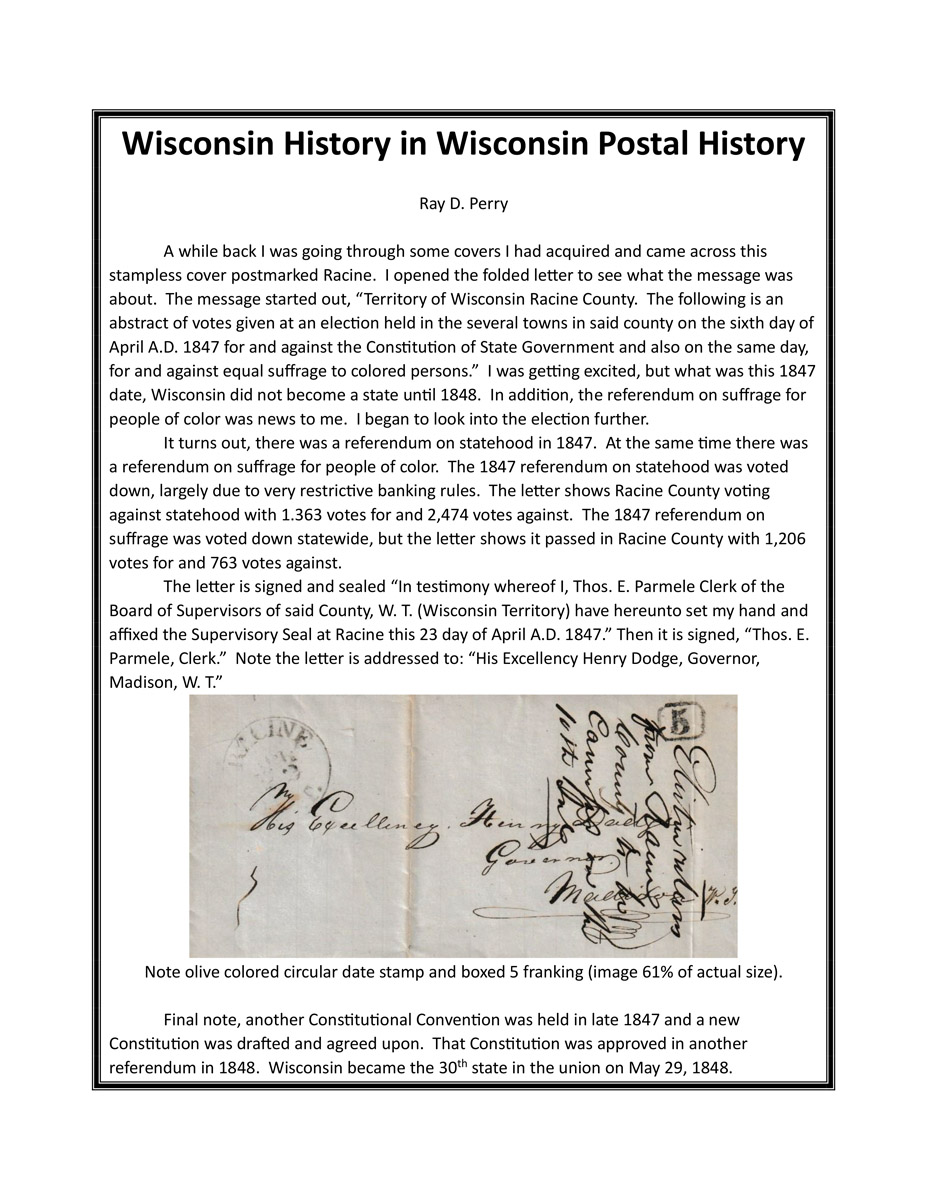 Wisconsin History in Wisconsin Postal History
Ray D. Perry
A while back I was going through some covers I had acquired and came across this
stampless cover postmarked Racine.  I opened the folded letter to see what the message was
about.  The message started out, “Territory of Wisconsin Racine County.  The following is an
abstract of votes given at an election held in the several towns in said county on the sixth day of
April A.D. 1847 for and against the Constitution of State Government and also on the same day,
for and against equal suffrage to colored persons.”  I was getting excited, but what was this 1847
date, Wisconsin did not become a state until 1848.  In addition, the referendum on suffrage for
people of color was news to me.  I began to look into the election further.
It turns out, there was a referendum on statehood in 1847.  At the same time there was
a referendum on suffrage for people of color.  The 1847 referendum on statehood was voted
down, largely due to very restrictive banking rules.  The letter shows Racine County voting
against statehood with 1.363 votes for and 2,474 votes against.  The 1847 referendum on
suffrage was voted down statewide, but the letter shows it passed in Racine County with 1,206
votes for and 763 votes against.
The letter is signed and sealed “In testimony whereof I, Thos. E. Parmele Clerk of the
Board of Supervisors of said County, W. T. (Wisconsin Territory) have hereunto set my hand and
affixed the Supervisory Seal at Racine this 23 day of April A.D. 1847.” Then it is signed, “Thos. E.
Parmele, Clerk.”  Note the letter is addressed to: “His Excellency Henry Dodge, Governor,
Madison, W. T.”
RACINE
5
His Excellency. Henry Dodge
Governor
Madison W.T.
Election returns
from Racine
County
Note olive colored circular date stamp and boxed 5 franking (image 61% of actual size).
Final note, another Constitutional Convention was held in late 1847 and a new
Constitution was drafted and agreed upon.  That Constitution was approved in another
referendum in 1848.  Wisconsin became the 30th state in the union on May 29, 1848.